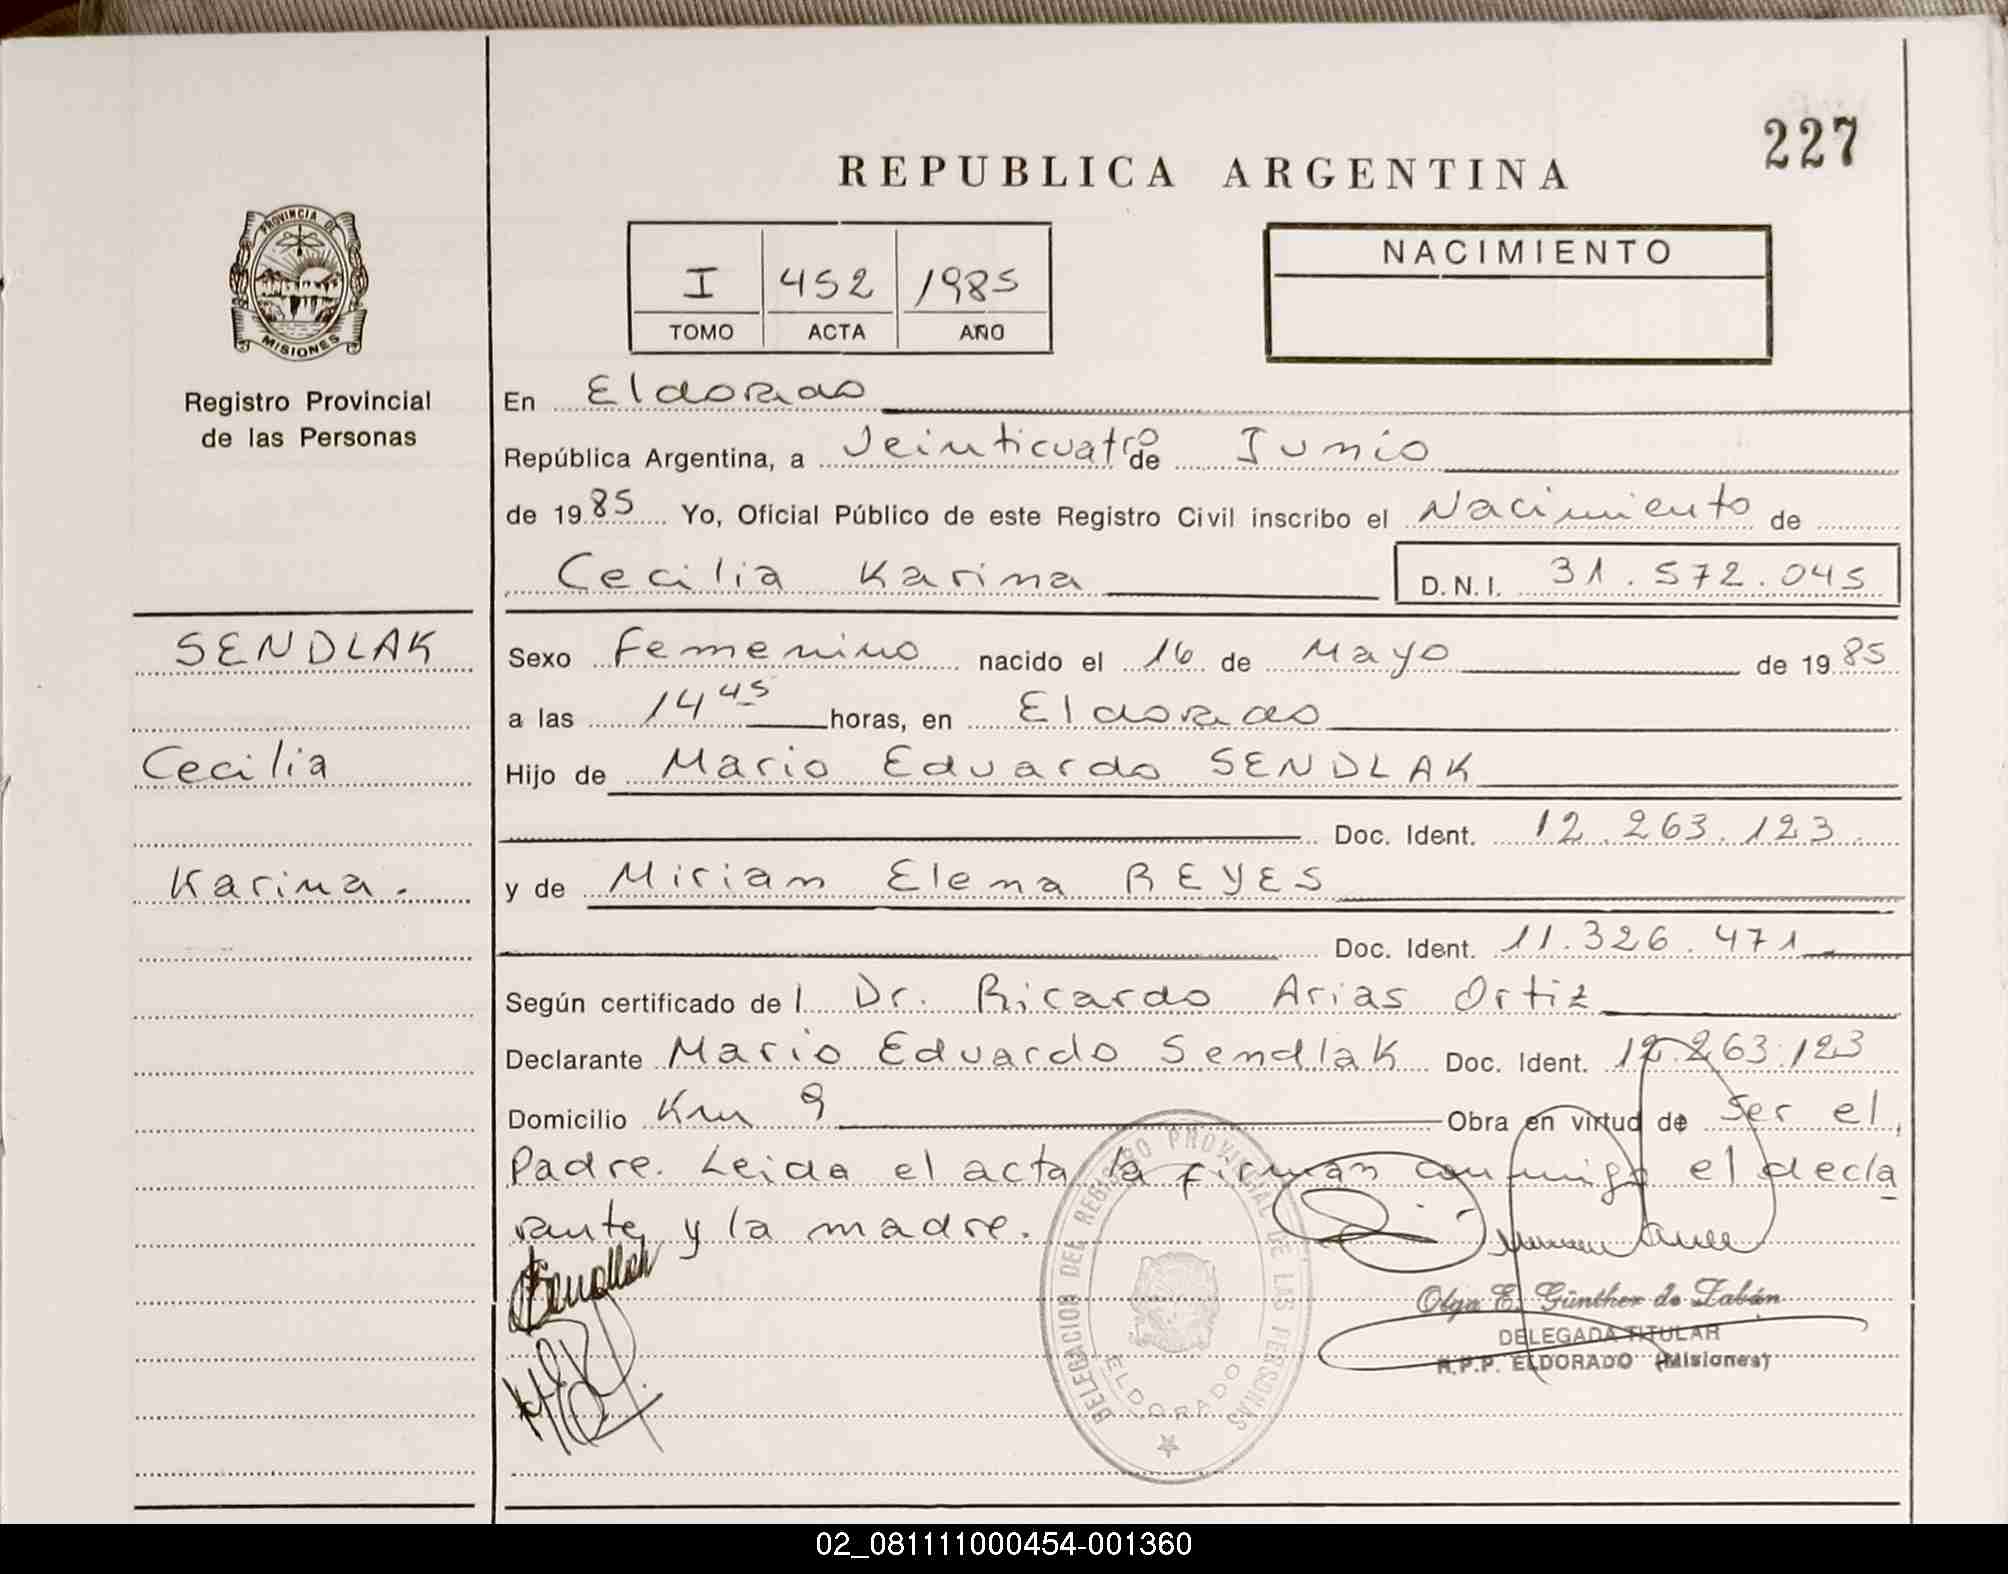 227
REPUBLICA ARGENTINA
PROVINCIA DE
MISIONES
Registro Provincial
de las Personas
I 452 1985
TOMO ACTA AÑO
NACIMIENTO
En Eldorado
República Argentina, a Veinticuatro de Junio
de 1985 Yo, Oficial Público de este Registro Civil inscribo el Nacimiento de
Cecilia Karina D.N.I. 31.572.045
SENDLAK
Cecilia
Karina.
Sexo Femenino nacido el 16 de Mayo de 1985
a las 14 45 horas, en Eldorado
Hijo de Mario Eduardo SENDLAK
Doc. Ident. 12.263.123
y de Mirian Elena REYES
Doc. Ident. 11.326.471
Según certificado de l Dr. Ricardo Arias Ortiz
Declarante Mario Eduardo Sendlak Doc. Ident. 12.263.123
Domicilio Km 9 Obra en virtud de ser el
Padre. Leida el acta la firman conmigo el decla
rante y la madre.
DELEGACION DEL REGISTRO PROVINCIAL DE LAS PERSONAS
ELDORADO
Olga E. Günther de Zabán
DELEGADA TITULAR
R.P.P. ELDORADO (Misiones)
02_081111000454-001360